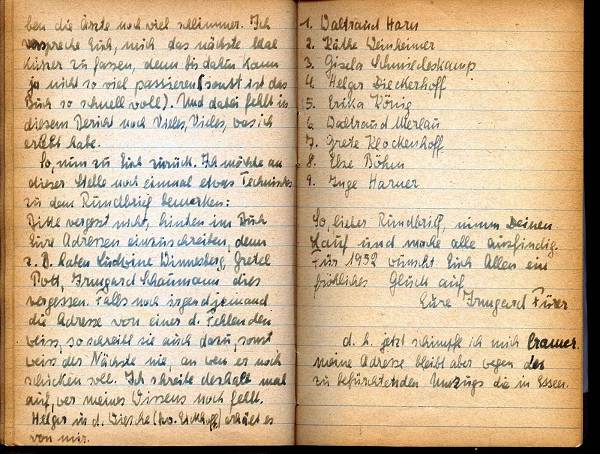 ben die Ärzte noch viel schlimmer. Ich
verspreche Euch, mich das nächste Mal
kürzer zu fassen, denn bis dahin kann
ja nicht so viel passieren (sonst ist das
Buch so schnell voll). Und dabei fehlt in
diesem Bericht noch Vieles, Vieles, was ich
erlebt habe.
So, nun zu Euch zurück. Ich möchte an
dieser Stelle noch einmal etwas Technisches
zu dem Rundbrief bemerken:
Bitte vergesst nicht, hinten im Buch
Eure Adressen einzuschreiben, denn
z. B. haben Ludwine Winnesberg, Gretel
Pott, Irmgard Schaumann dies
vergessen. Falls noch irgendjemand
die Adresse von einer d. Fehlenden
weiss, so schreibt sie auch dazu, sonst
weiss der Nächste nie, an wen er noch
schicken soll. Ich schreibe deshalb mal
auf, wer meines Wissens noch fehlt.
Helga in d. Wiesche erhält es
von mir.
1. Waltraud Harn
2. Käthe Weinheimer
3. Gisela Schmiedeskamp
4. Helga Dieckerhoff
5. Erika König
6. Waltraud Merlau
7. Grete Klockenhoff
8. Else Böhm
9. Inge Harner
So, lieber Rundbrief, nimm Deinen
Lauf und mache alle ausfindig.
Für 1952 wünscht Euch Allen ein
fröhliches Glück auf
Eure Irmgard Fürer
d. h. jetzt schimpfe ich mich Cramer.
meine Adresse bleibt aber wegen des
zu befürchtenden Umzugs die in Essen.